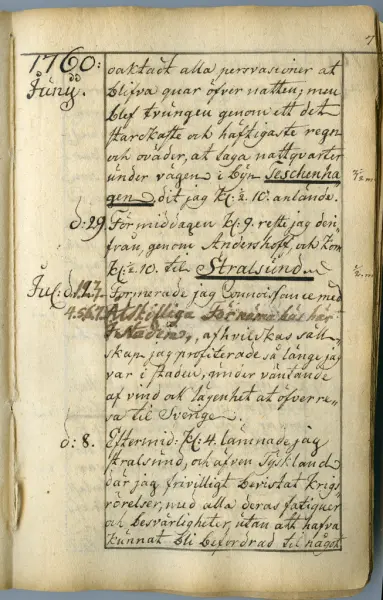 1760:
Junÿ.
oaktadt alla persvasioner at
blifva quar öfver natten; men
blef tvungen genom ett det
starckaste och häftigaste regn
och oväder, at taga nattqvarter
under vägen i byn Teschenha
gen, dit jag kl: ½ 10. anlände.
d: 29. Förmiddagen kl: 9. reste jag der
ifrån, genom Andershoff, och kom
kl: ½ 10. til Stralsund.
Jul: d. 1.2.3.
4.5.6.7.
Formerade jag Connoisance med
Atskilliga Förnäma här
i Staden, af hvilckas säll
skap jag profiterade så länge jag
var i staden, under väntande
af vind och lägenhet at öfverre
sa til Sverige.
d: 8. Eftermid: kl: 4. lämnade jag
Stralsund, och äfven Tyskland
där jag frivilligt bevistat krigs
rörelser, med alla deras fatiguer
och besvärligheter, utan att hafva
kunnat bli befordrad til något